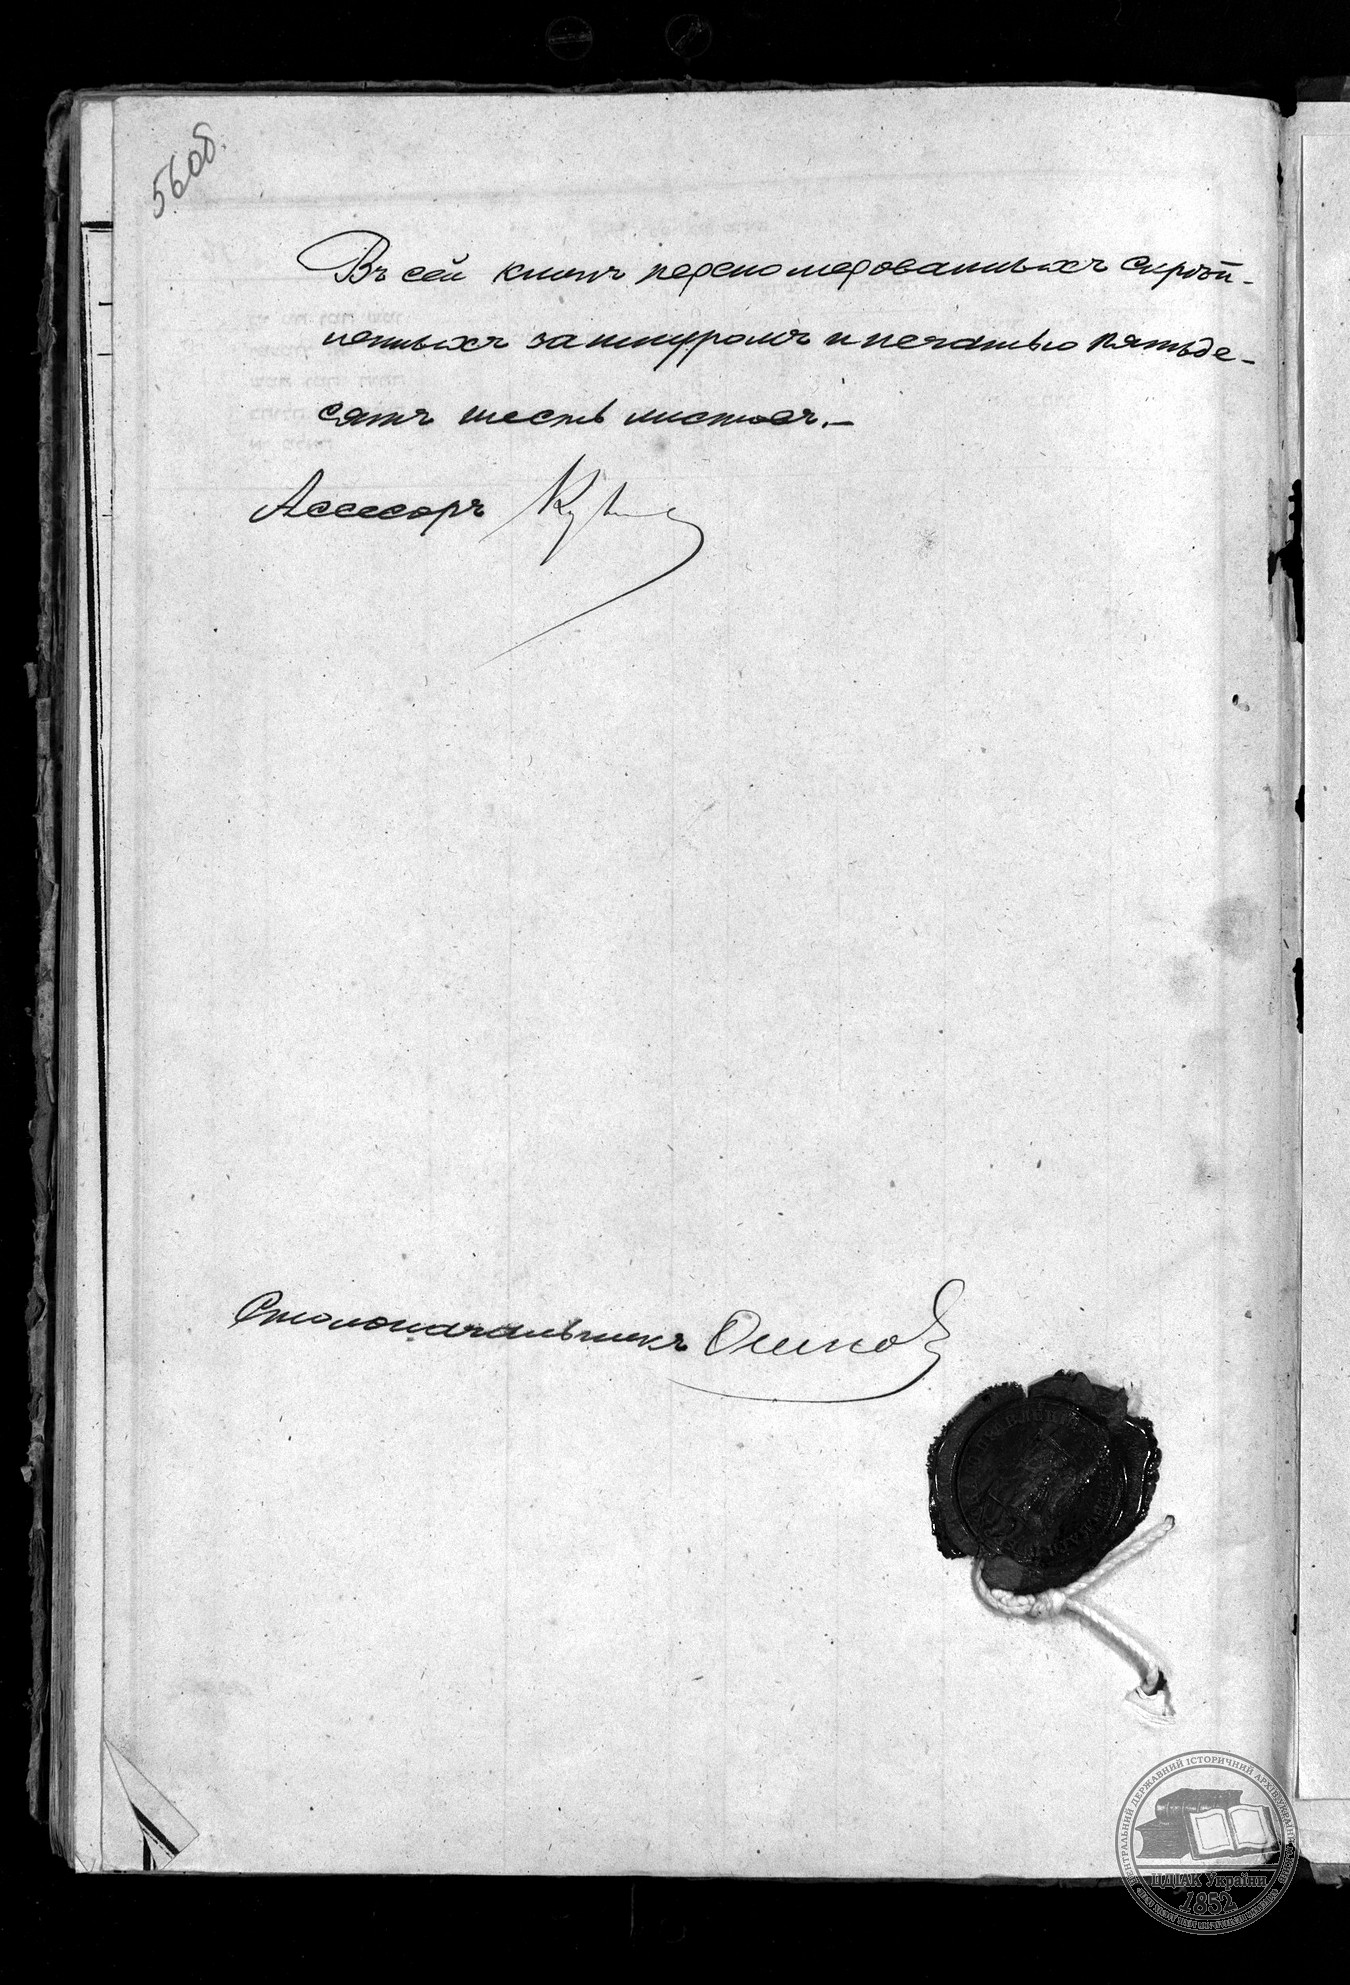 56об.
Въ сей книгѣ перенумерованныхъ скрѣп-
ленныхъ за шнуромъ и печатью пятьде-
сятъ шесть листовъ.—
Асессоръ
Столоначальникъ Осипов
ЦЕНТРАЛЬНИЙ ДЕРЖАВНИЙ ІСТОРИЧНИЙ АРХІВ УКРАЇНИ
ЦДІАК України
1852